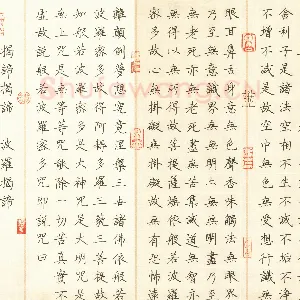 舍利子是諸法空相不生不滅不垢不淨
不增不減是故空中無色無受想行識無
眼耳鼻舌身意無色聲香味觸法無眼界
乃至無意識界無無明亦無無明盡乃至
無老死亦無老死盡無苦集滅道無智亦
無得以無所得故菩提薩埵依般若波羅
蜜多故心無掛礙無掛礙故無有恐怖遠
離顛倒夢想究竟涅槃三世諸佛依般若
波羅蜜多故得阿耨多羅三藐三菩提故
知般若波羅蜜多是大神咒是大明咒是
無上咒是無等等咒能除一切苦真實不
虛故說般若波羅蜜多咒即說咒曰
揭諦揭諦 波羅揭諦